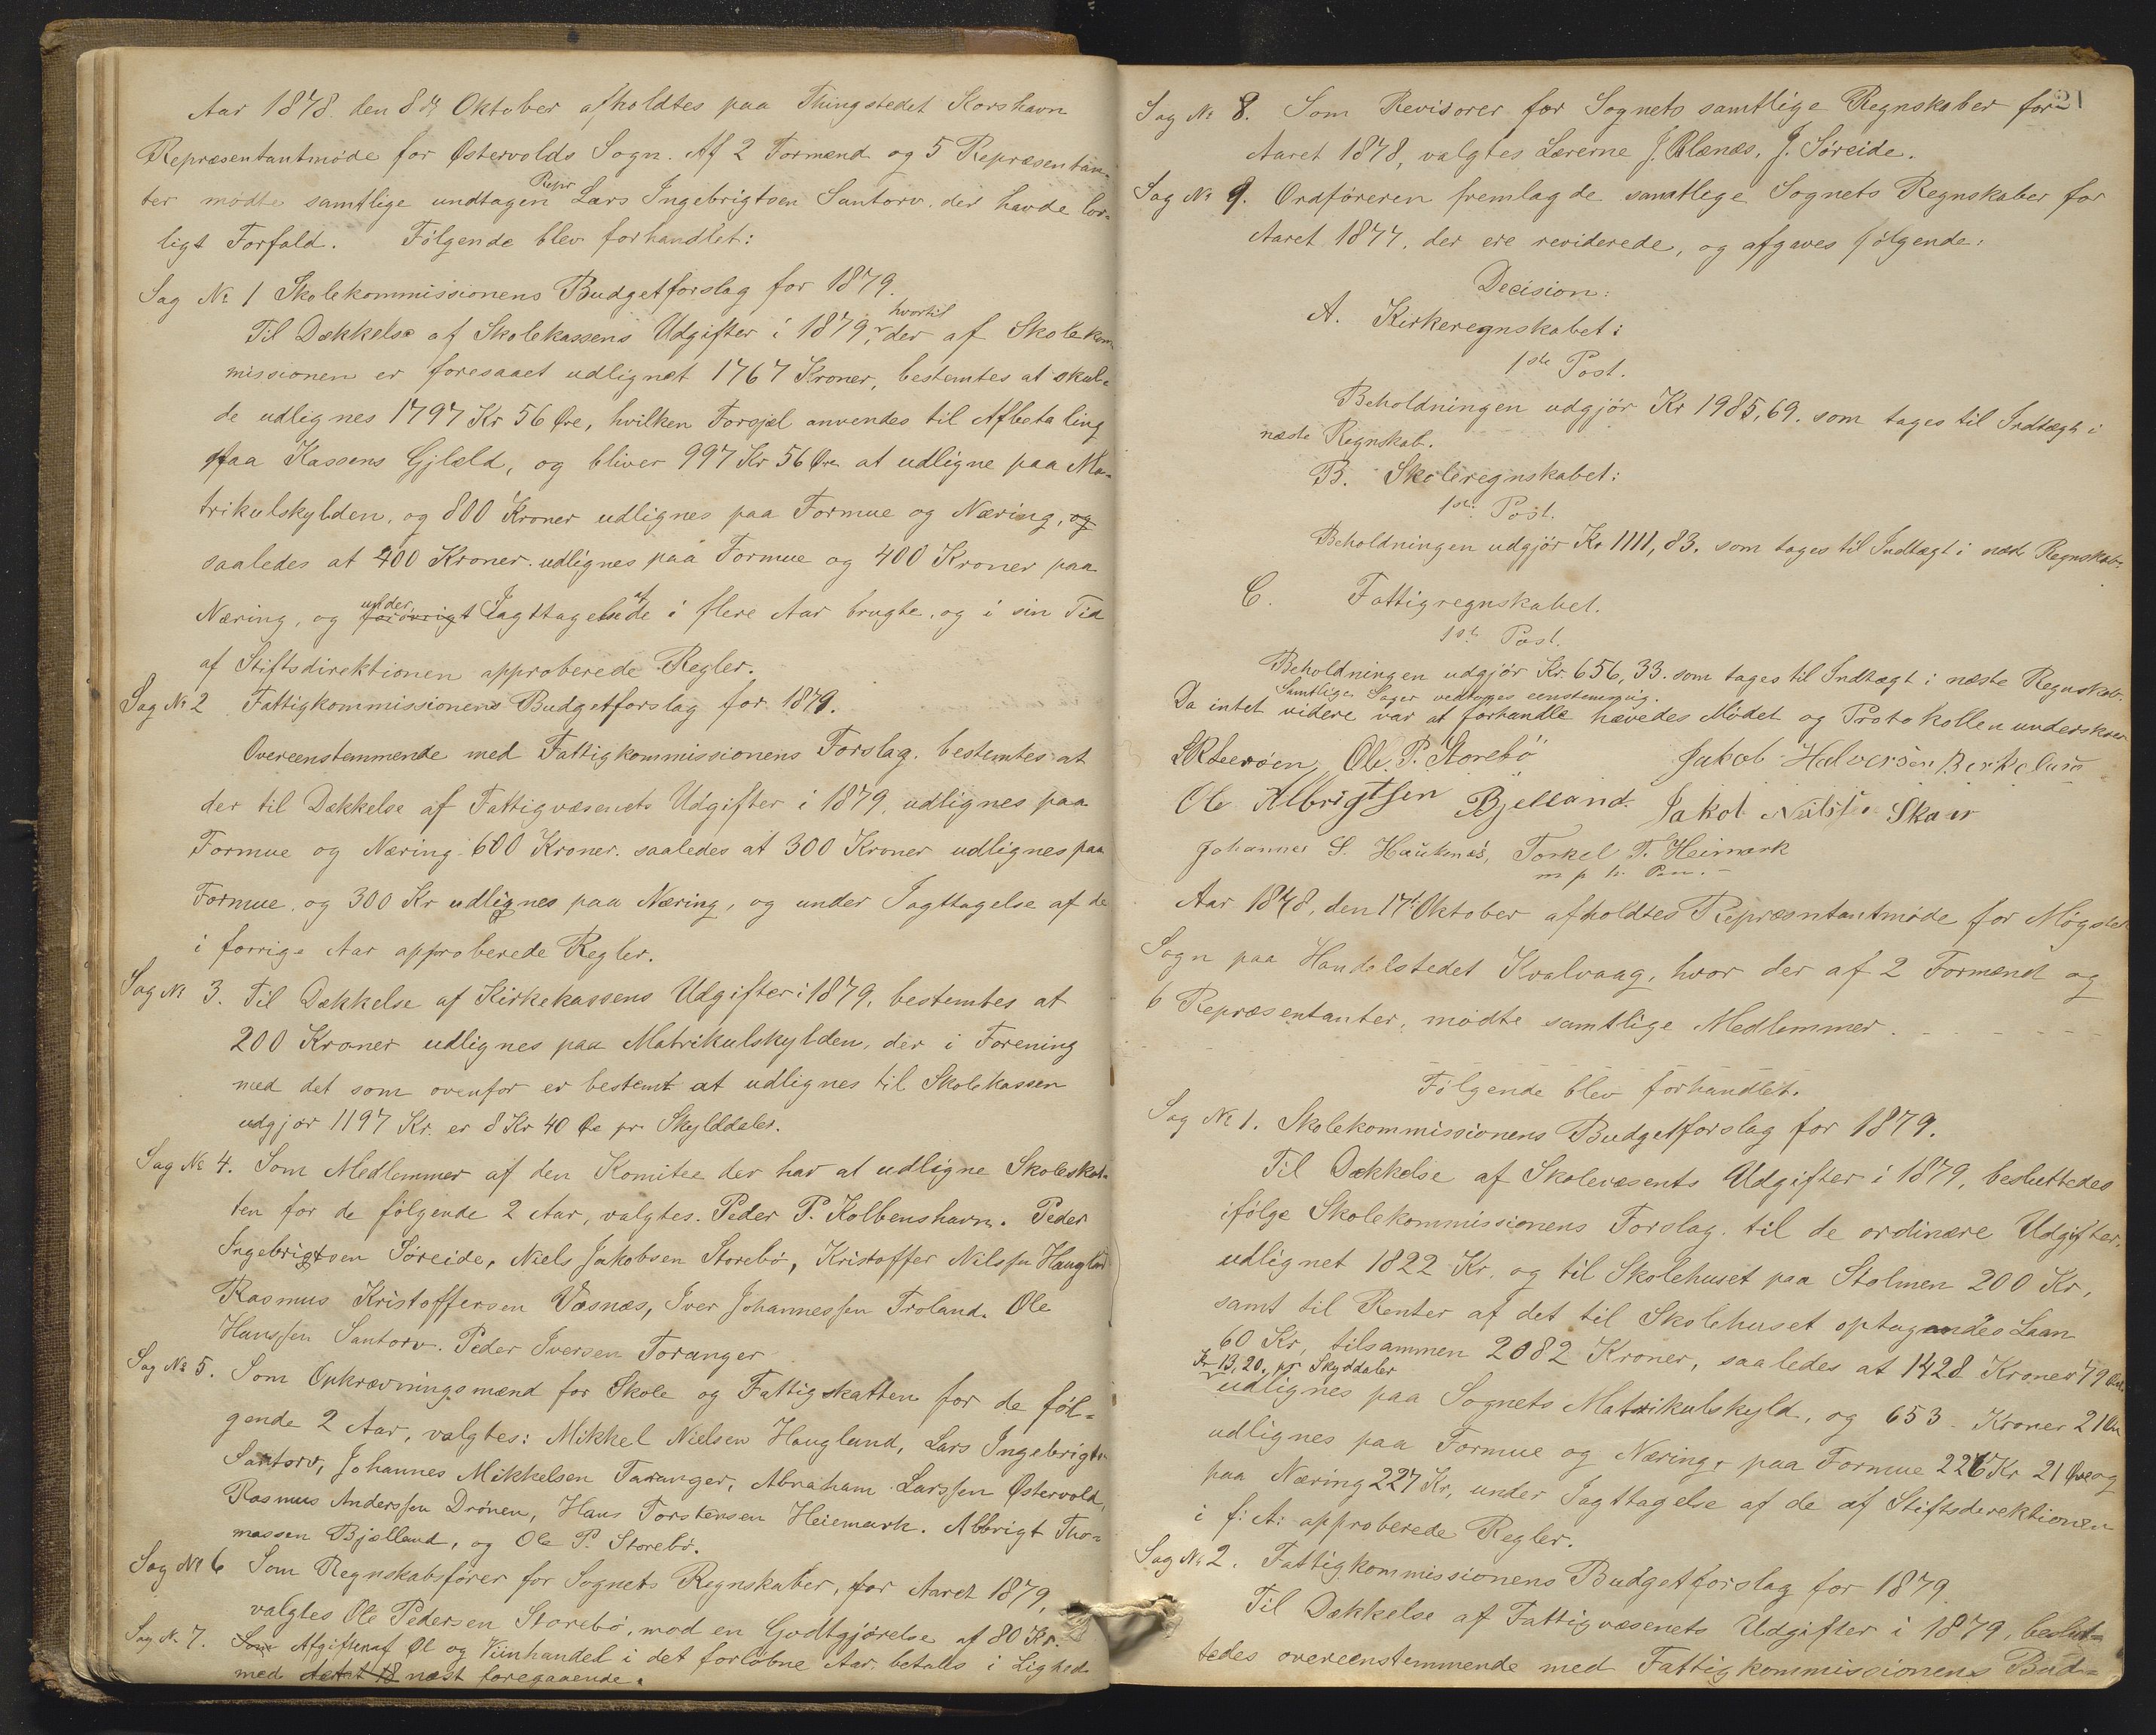 Aar 1878. den 8de Oktober afholdtes paa Thingstedet Korshavn
Repræsentantmöde for Østervolds Sogn. Af 2 Formænd og 5 Repræsentan-
ter mödte samtlige undtagen Repr Lars Ingebrigtsen Santorv. der havde lov-
ligt Forfald. Fölgende blev forhandlet:
Sag № 1 Skolekommissionens Budgetforslag for 1879.
Til Dækkelse af Skolekassens Udgifter i 1879, hvortil der af Skolekom-
missionen er foreslaaet udlignet 1767 Kroner, bestemtes at skul-
de udlignes 1797 Kr 56 Øre, hvilken Forsjel anvendes til Afbetaling
paa Kassens Gjæld, og bliver 997 Kr 56 Øre at udligne paa Ma-
trikulskylden, og 800 Kroner udlignes paa Formue og Næring, og
saaledes at 400 Kroner udlignes paa Formue og 400 Kroner paa
Næring, og forövrigt under Iagttagelse af de i flere Aar brugte, og i sin Tid
af Stiftsdirektionen approberede Regler.
Sag № 2 Fattigkommissionens Budgetforslag for 1879.
Overeenstemmende med Fattigkommissionens Forslag. bestemtes at
der til Dækkelse af Fattigvæsenets Udgifter i 1879, udlignes paa
Formue og Næring 600 Kroner. saaledes at 300 Kroner udlignes paa
Formue, og 300 Kr udlignes paa Næring, og under Iagttagelse af de
i forrige Aar approberede Regler.
Sag № 3. Til Dækkelse af Kirkekassens Udgifter i 1879, bestemtes at
200 Kroner udlignes paa Matrikulskylden, der i Forening
med det som ovenfor er bestemt at udlignes til Skolekassen
udgjør 1197 Kr. er 8 Kr 40 Øre pr Skylddaler.
Sag № 4. Som Medlemmer af den Komitee der har at udligne Skoleskat-
ten for de fölgende 2 Aar, valgtes. Peder P. Kolbenshavn. Peder
Ingebrigtsen Söreide, Niels Jakobsen Storebö, Kristoffer Nilssen Haugland
Rasmus Kristoffersen Vasnæs, Iver Johannessen Troland. Ole
Hanssen Santorv. Peder Iversen Toranger
Sag № 5. Som Opkrævningsmænd for Skole og Fattigskatten for de föl-
gende 2 Aar, valgtes: Mikkel Nielsen Haugland, Lars Ingebrigts.
Santorv, Johannes Mikkelsen Taranger, Abraham Larssen Østervold,
Rasmus Anderssen Drönen, Hans Torstensen Heiemark. Albrigt Tho-
massen Bjelland, og Ole P. Storebö.
Sag № 6 Som Regnskabsförer for Sognets Regnskaber, for Aaret 1879,
valgtes Ole Pedersen Storebö, mod en Godtgjörelse af 80 Kr.
Sag № 7. Som Afgiften af Øl og Viinhandel i det forlöbne Aar, betales i Lighed
med Aaret 18 næst foregaaende.
21
Sag № 8. Som Revisorer for Sognets samtlige Regnskaber for
Aaret 1878, valgtes Lærerne J. Blænæs, J. Söreide.
Sag № 9. Ordföreren fremlagde samtlige Sognets Regnskaber for
Aaret 1877, der ere reviderede, og afgaves fölgende:
Decision:
A. Kirkeregnskabet:
1ste Post.
Beholdningen udgjör Kr 1985,69. som tages til Indtægt i
næste Regnskab.
B. Skoleregnskabet:
1ste Post.
Beholdningen udgjör Kr 1111,83. som tages til Indtægt i næste Regnskab.
C. Fattigregnskabet.
1ste Post.
Beholdningen udgjör Kr. 656,33. som tages til Indtægt i næste Regnskab.
Samtlige Sager vedtoges eenstemmig.
Da intet videre var at forhandle hævedes Mödet og Protokollen underskrev
Ole P. Storebö Jakob Halversen Birkeland
Ole Albrigtsen Bjelland. Jakob Nilssen Skaar
Johannes S. Hauknæs, Torkel T. Heimark
m p h. Pen. -
Aar 1878, den 17de Oktober afholdtes Repræsentantmöde for Mögster
Sogn paa Handelstedet Kvalvaag, hvor der af 2 Formænd og
6 Repræsentanter, mödte samtlige Medlemmer.
Fölgende blev forhandlet.
Sag № 1. Skolekommissionens Budgetforslag for 1879.
Til Dækkelse af Skolevæsents Udgifter i 1879, besluttedes
ifölge Skolekommissionens Forslag. til de ordinære Udgifter,
udlignet 1822 Kr. og til Skolehuset paa Stolmen 200 Kr,
samt til Renter af det til Skolehuset optagendes Laan
60 Kr, tilsammen 2082 Kroner, saaledes at 1428 Kroner 79 Öre
Kr 13,20, pr Skylddaler
udlignes paa Sognets Matrikulskyld, og 653 Kroner 21 Öre
udlignes paa Formue og Næring, paa Formue 226 Kr 21 Öre og
paa Næring 227 Kr, under Iagttagelse af de af Stiftsdirektionen
i f: A: approberede Regler.
Sag № 2. Fattigkommissionens Budgetforslag for 1879
Til Dækkelse af Fattigvæsenets Udgifter i 1879, beslut-
tedes overeenstemmende med Fattigkommissionens Bud-